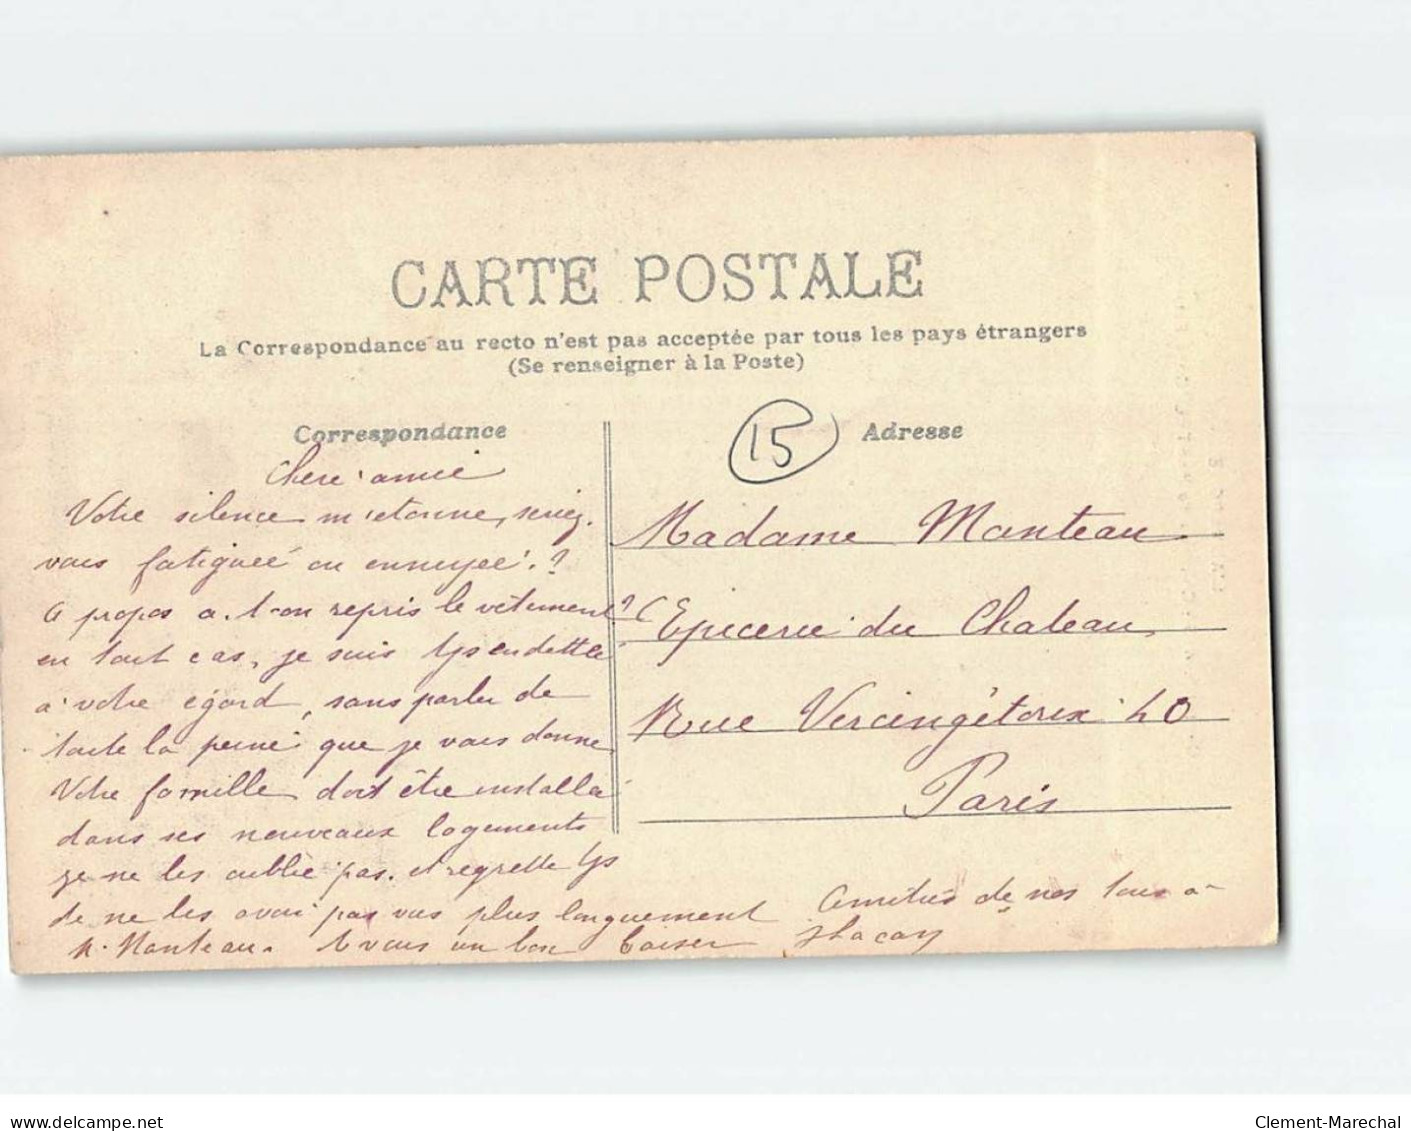 CARTE POSTALE
La Correspondance au recto n'est pas acceptée par tous les pays étrangers
(Se renseigner à la Poste)
Correspondance
15
Adresse
Chere amie
Votre silence m'etonne, seriez.
vous fatiguée ou ennuyée. ?
a propos a. t-on repris le vetement ?
en tout cas, je suis tjs endettée
a votre égard, sans parler de
toute la peine que je vous donne
Votre famille doit être installé
dans ses nouveaux logements
je ne les oublie pas. et regrette tjs
de ne les avoir pas vus plus longuement
M. Manteau. & vous un bon baiser
Amitiés de nos tous a
Madame Manteau
Epicerie du Chateau
Rue Vercingétorix 40
Paris
www.delcampe.net
Clement-Marechal